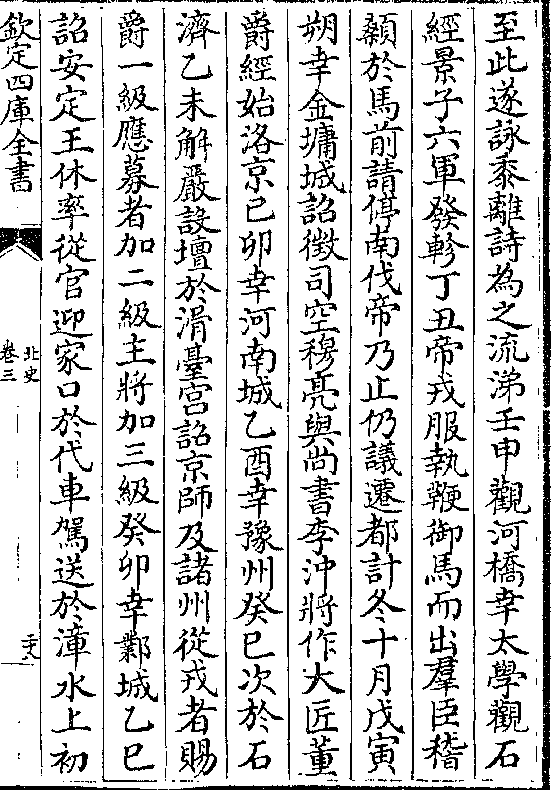 至此遂詠黍離詩為之流涕壬申觀河橋幸太學觀石
經景子六軍發軫丁丑帝戎服執鞭御馬而出羣臣稽
顙於馬前請停南伐帝乃止仍議遷都計冬十月戊寅
朔幸金墉城詔徵司空穆亮與尚書李沖將作大匠董
爵經始洛京己卯幸河南城乙酉幸豫州癸巳次於石
濟乙未解嚴設壇於滑臺宮詔京師及諸州從戎者賜
爵一級應募者加二級主將加三級癸卯幸鄴城乙巳
詔安定王休率從官迎家口於代車駕送於漳水上初
欽定四庫全書
北史
卷三
二六